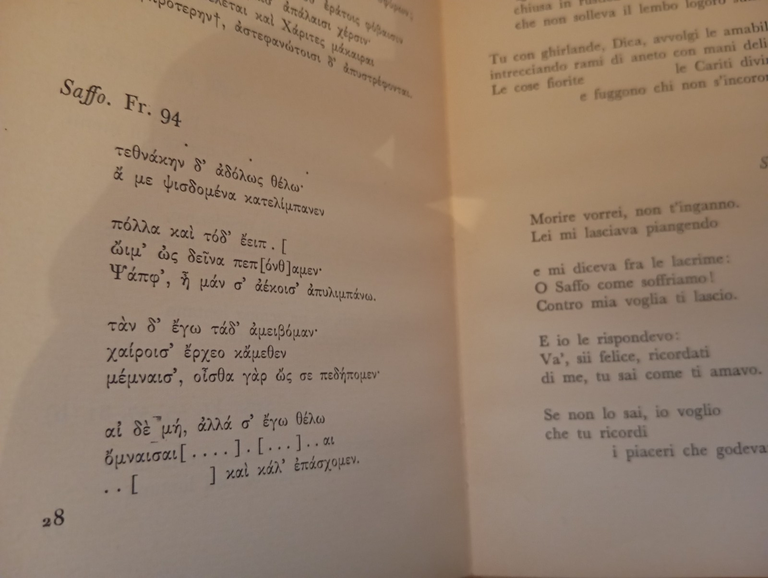 ἀπάλαισι χέρσιν·
καὶ Χάριτες μάκαιραι
ἀστεφανώτοισι δ' ἀπυστρέφονται.
Saffo. Fr. 94
τεθνάκην δ' ἀδόλως θέλω·
ἄ με ψισδομένα κατελίμπανεν
πόλλα καὶ τόδ' ἔειπ . [
ὤιμ' ὠς δεῖνα πεπ[όνθ]αμεν·
Ψάπφ', ἦ μάν σ' ἀέκοισ' ἀπυλιμπάνω.
τὰν δ' ἔγω τάδ' ἀμειβόμαν·
χαίροισ' ἔρχεο κἄμεθεν
μέμναισ', οἶσθα γὰρ ὤς σε πεδήπομεν·
αἰ δὲ μή, ἀλλά σ' ἔγω θέλω
ὄμναισαι[ . . . . ] . [ . . . ] . . αι
. . [ ] καὶ κάλ' ἐπάσχομεν.
28
chiusa in
che non solleva il lembo logoro
Tu con ghirlande, Dica, avvolgi le
intrecciando rami di aneto con mani
Le cose fiorite le Cariti
e fuggono chi non
Morire vorrei, non t'inganno.
Lei mi lasciava piangendo
e mi diceva fra le lacrime:
O Saffo come soffriamo!
Contro mia voglia ti lascio.
E io le rispondevo:
Va', sii felice, ricordati
di me, tu sai come ti amavo.
Se non lo sai, io voglio
che tu ricordi
i piaceri che